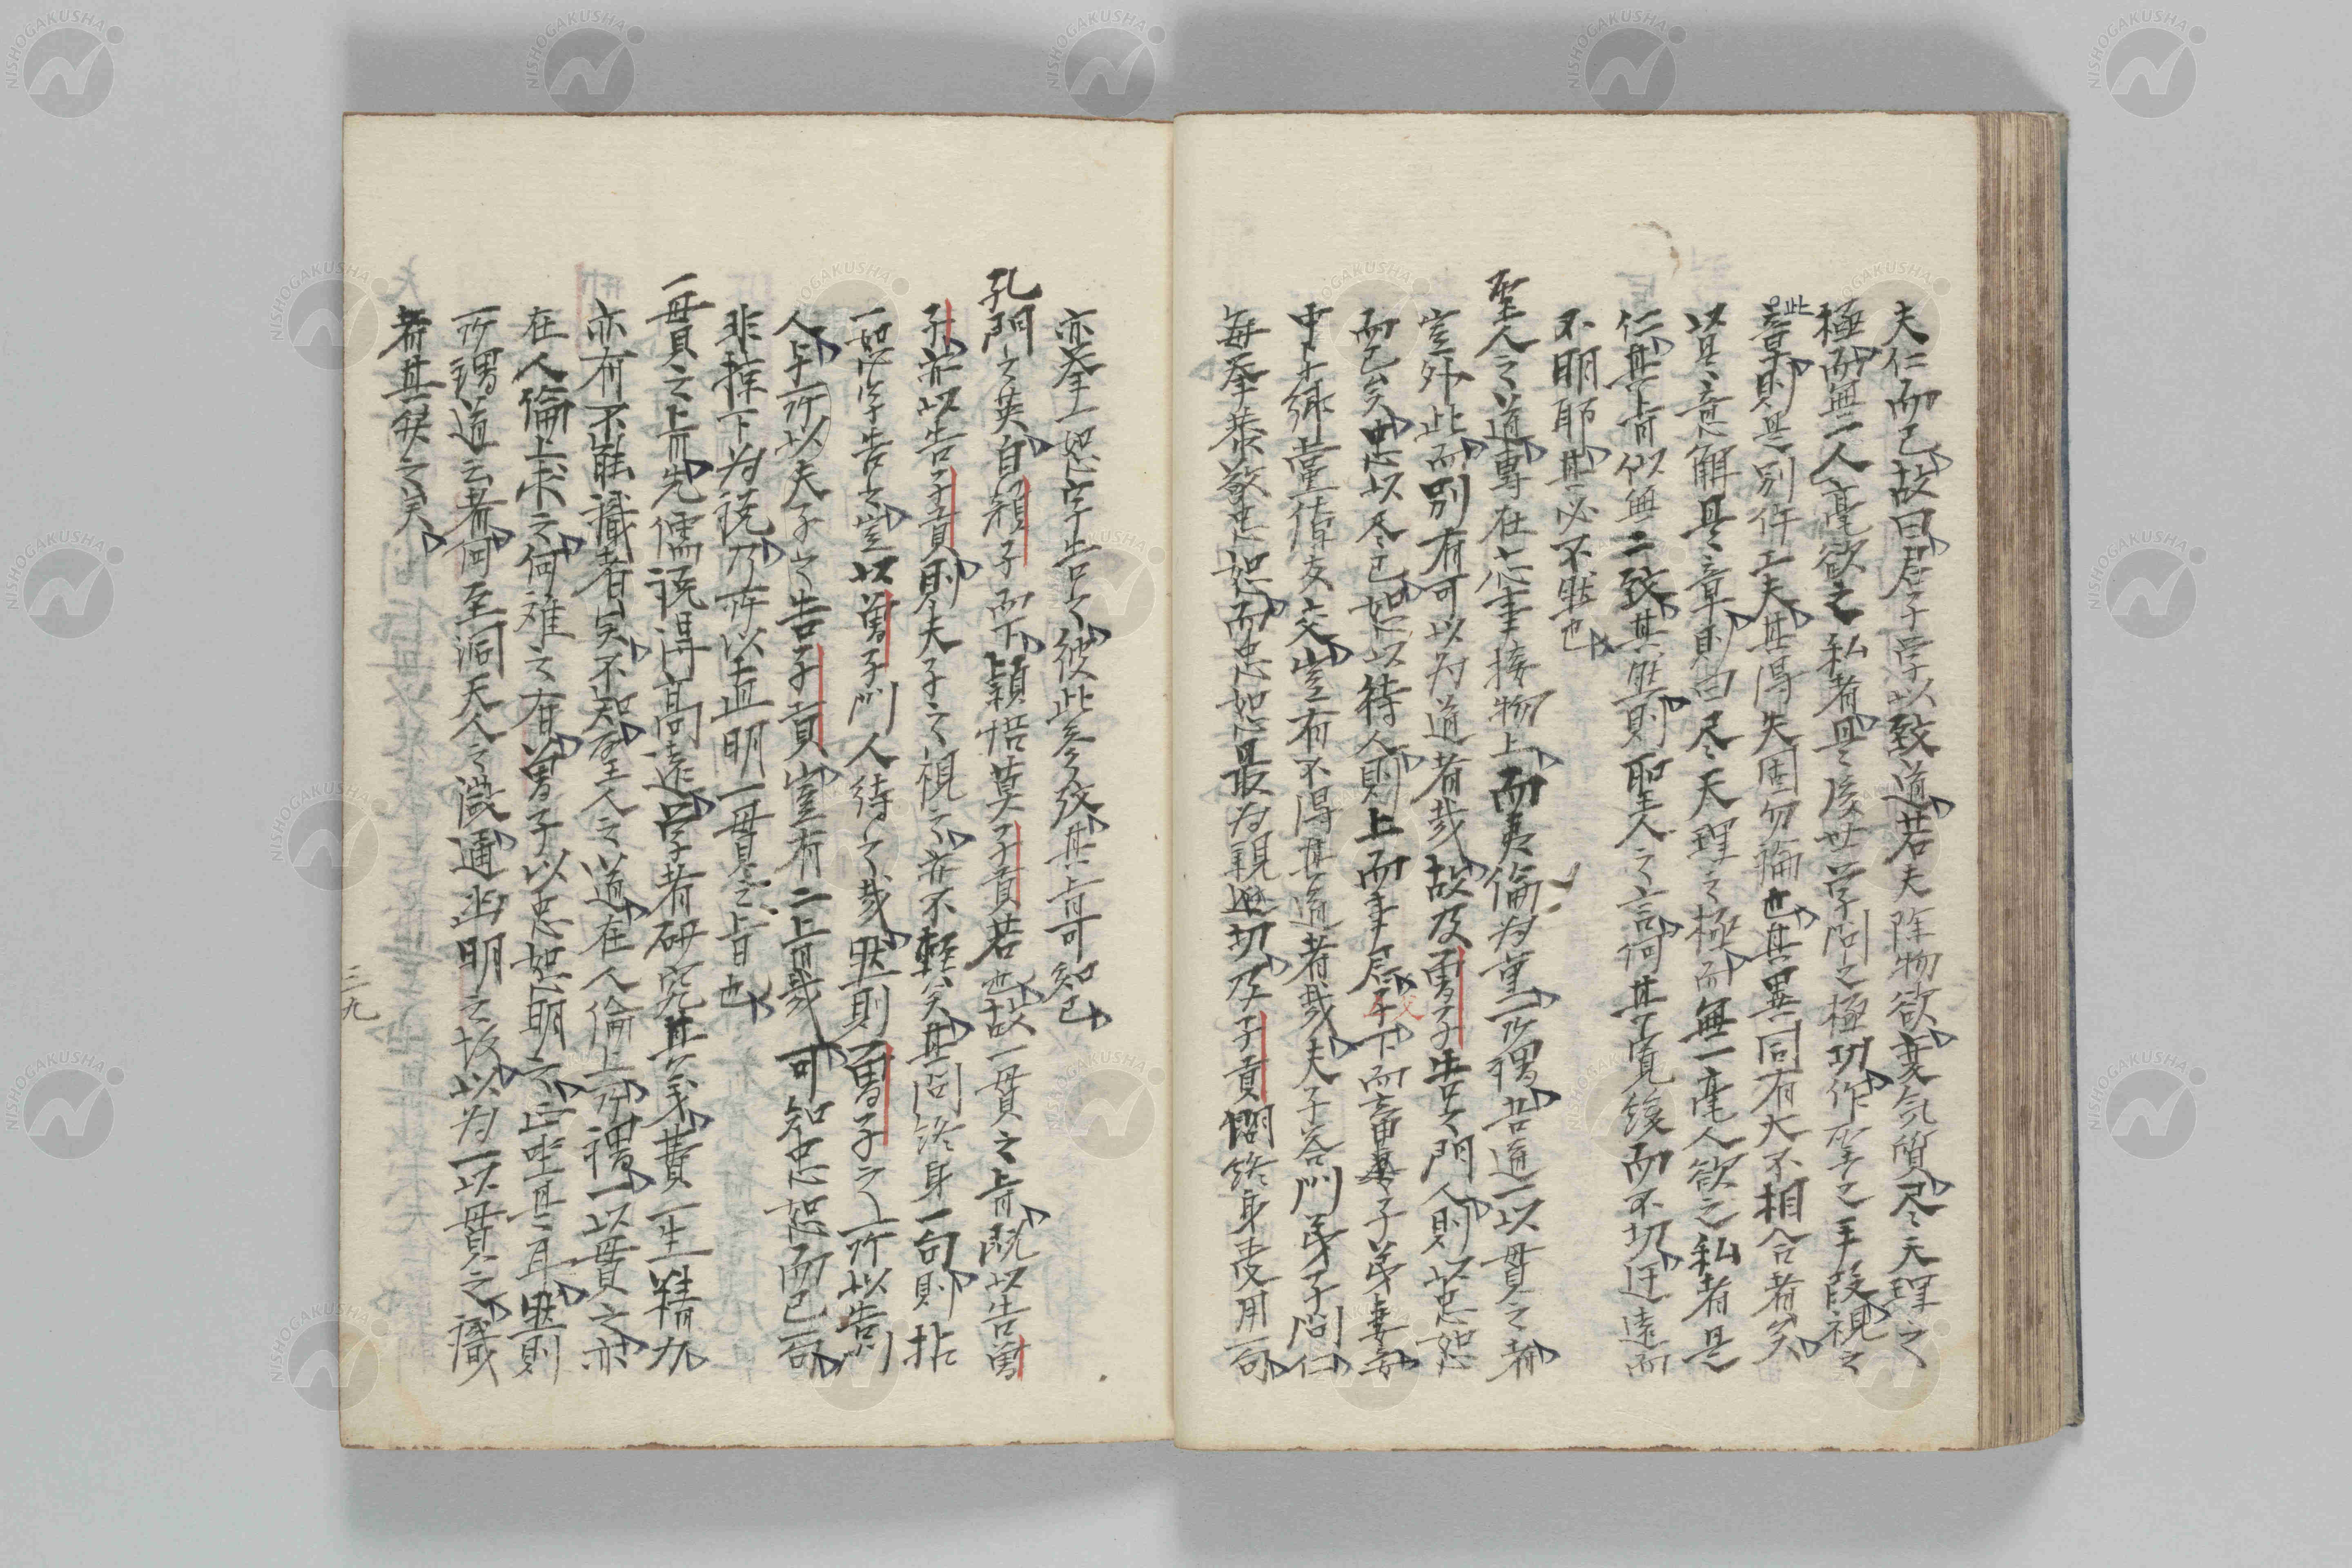 夫仁而已故曰君子学以致道若夫除物欲変気質尽天理之
極而無一人毫欲之私者是後世学問之極功作聖之手段視之
此章則是別件工夫其得失固勿論也其異同有大不相合者矣
以是意解是章則曰尽天理之極而無一毫人欲之私者是
仁其旨似無二致其熟則聖人之言何其寛緩而不切迂遠而
不明耶其必不然也
聖人之道専在応事接物上而夷倫為重所謂吾道一以貫之者
豈外此而別有可以為道者哉故及曽子告其門人則以忠恕
而已矣忠以尽己恕以待人則上而事君父下而畜妻子弟妻妾
中郷党信友交豈有不得其道者哉夫子答門弟子問仁
毎奉恭敬忠恕而忠恕最為親切及子貢問終身受用一句
亦奉一恕字告之彼此参攷其旨可知已
孔門之英自顔子而下穎悟莫子貢若也故一貫之旨既以告曽
子亦以告子貢則夫子之視之亦不軽矣其問終身一句則拈
一恕字告之豈以曽子門人待之哉然則曽子之所以告門
人与所以夫子之告子貢豈有二旨哉可知忠恕而已一句
非揀下為説乃所以直明一貫之旨也
一貫之旨先儒説得高遠学者研究其義費一生精力
亦有不能識者矣不知聖人之道在人倫上所謂一以貫之亦
在人倫上求之何難之有曽子以忠恕明之正坐是耳然則
所謂道云者何至洞天人之微通幽明之故以為一以貫之識
者其疑之矣
三九